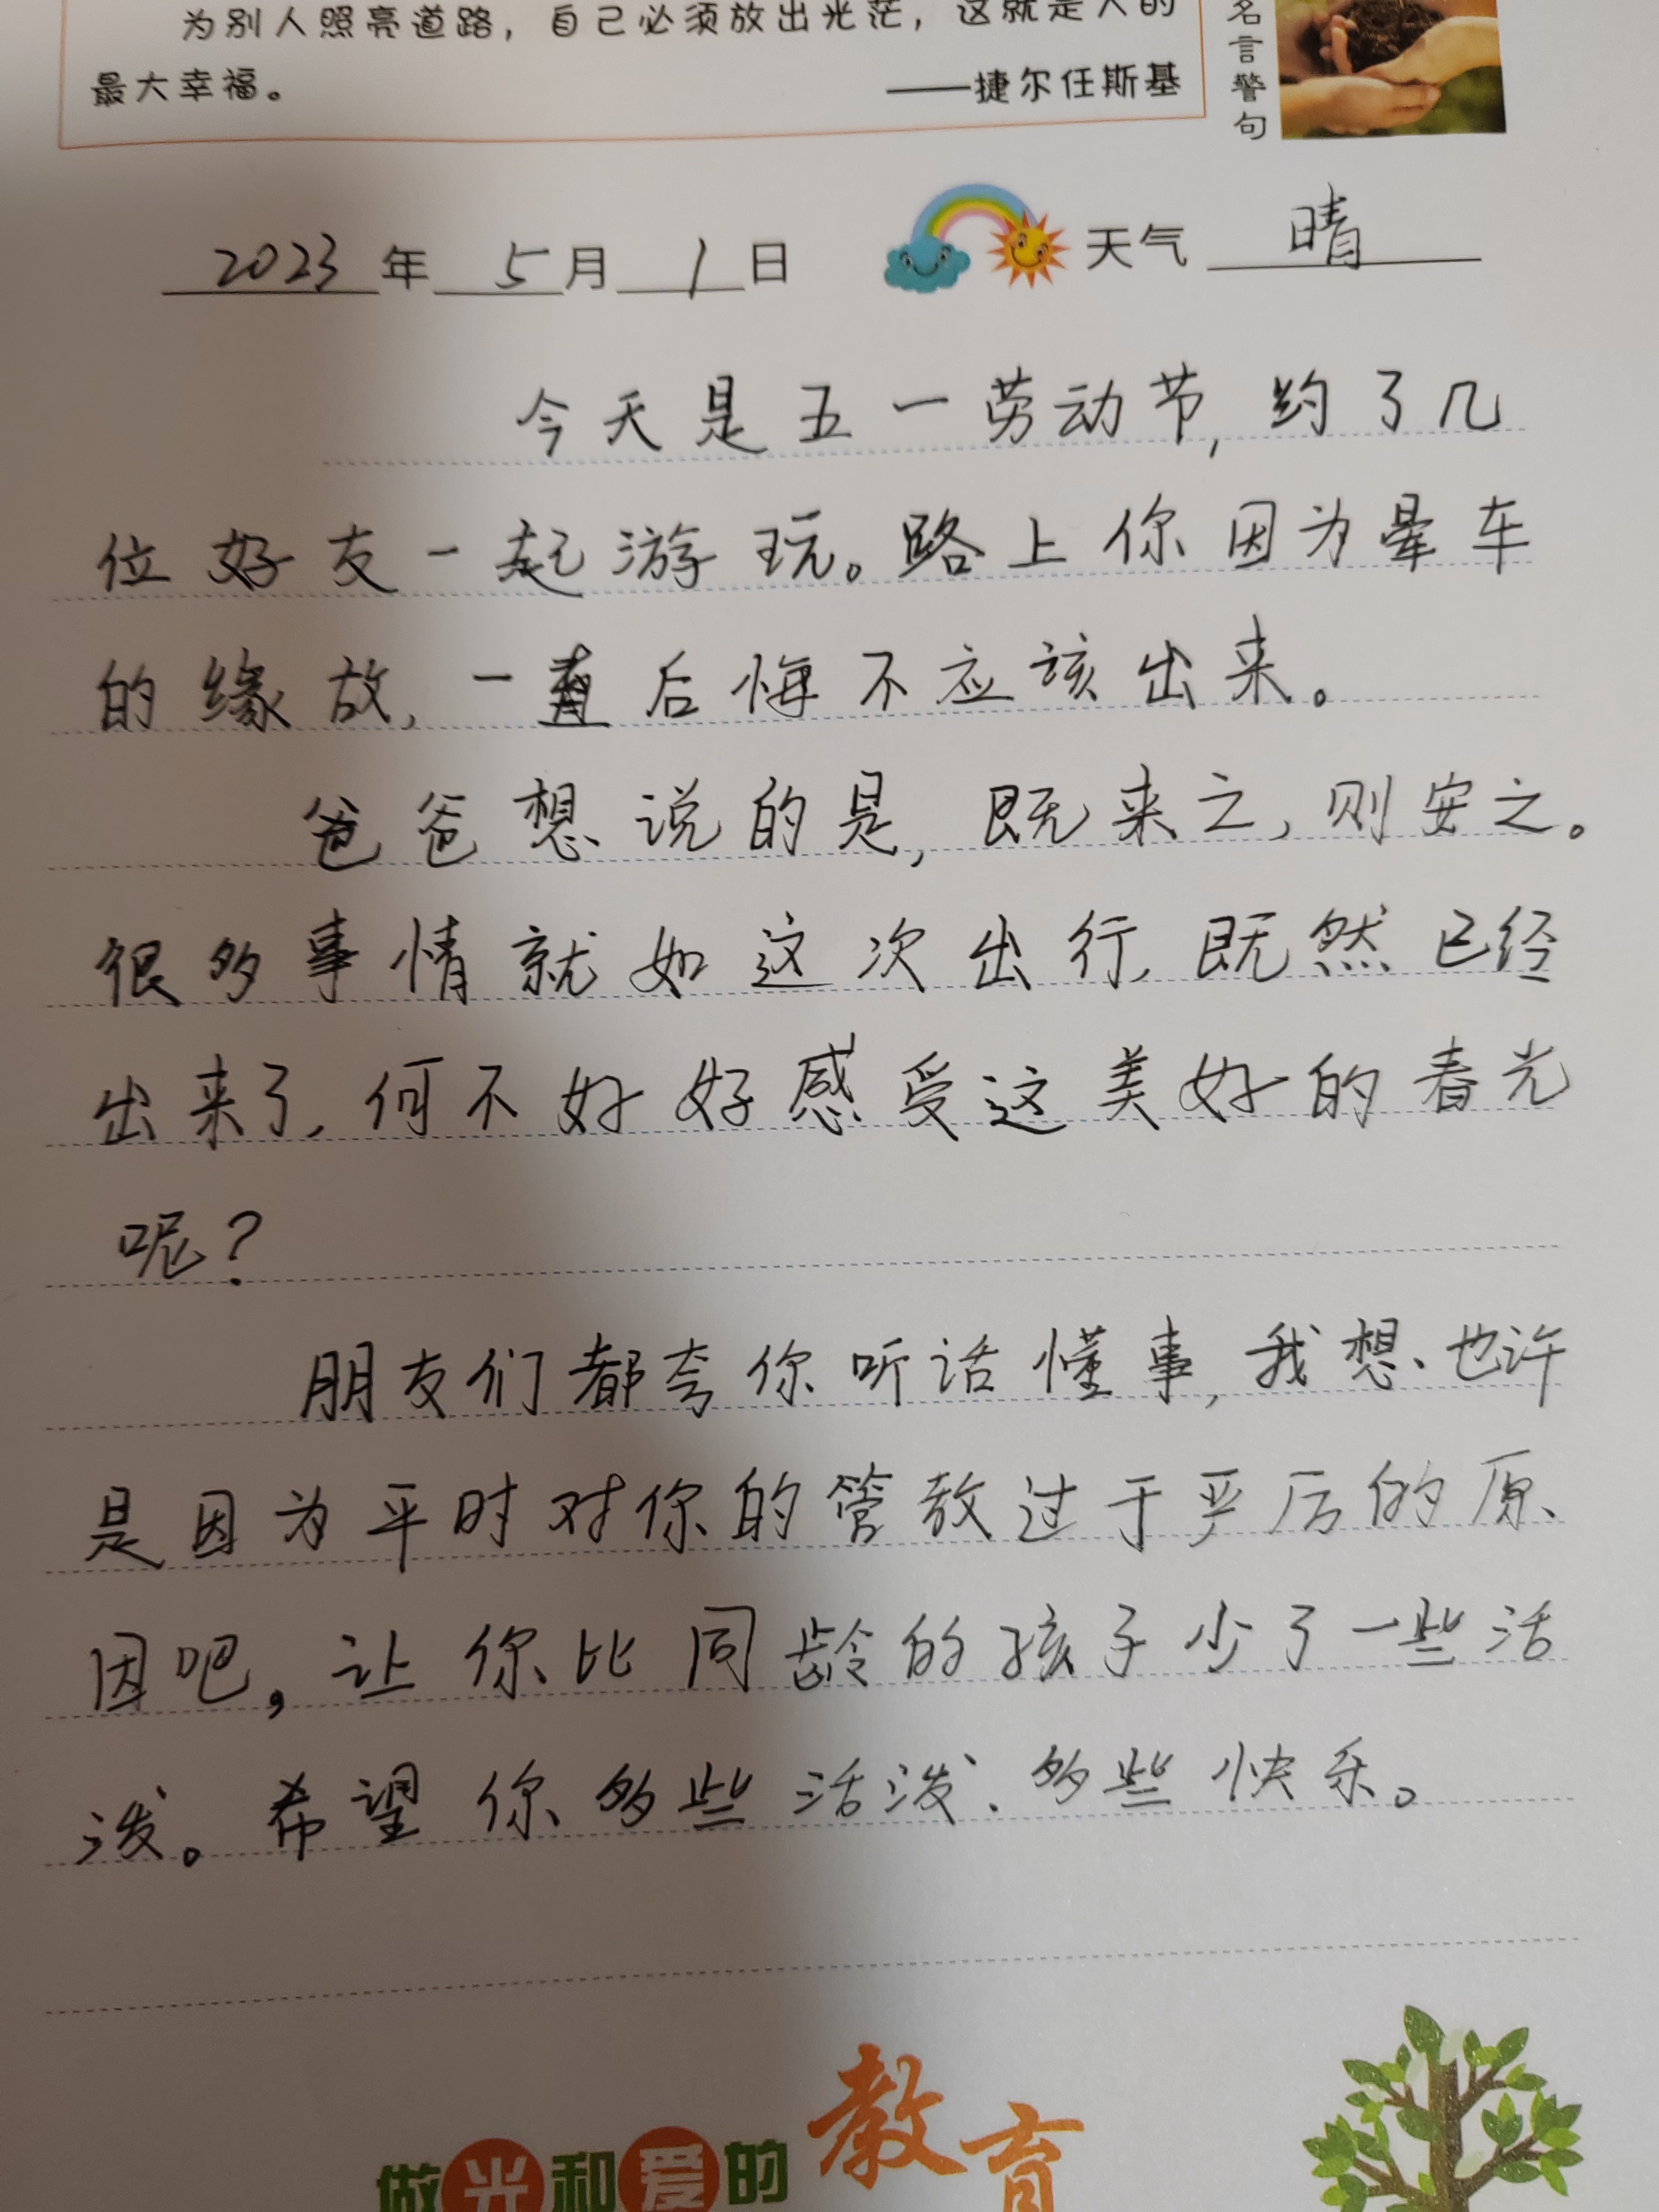 为别人照亮道路，自己必须放出光芒，这就是人的
最大幸福。
——捷尔任斯基
名言警句
2023年5月1日 天气 晴
今天是五一劳动节，约了几
位好友一起游玩。路上你因为晕车
的缘故，一直后悔不应该出来。
爸爸想说的是，既来之，则安之。
很多事情就如这次出行，既然已经
出来了，何不好好感受这美好的春光
呢？
朋友们都夸你听话懂事，我想、也许
是因为平时对你的管教过于严厉的原
因吧，让你比同龄的孩子少了一些活
泼。希望你多些活泼、多些快乐。
做光和爱的教育